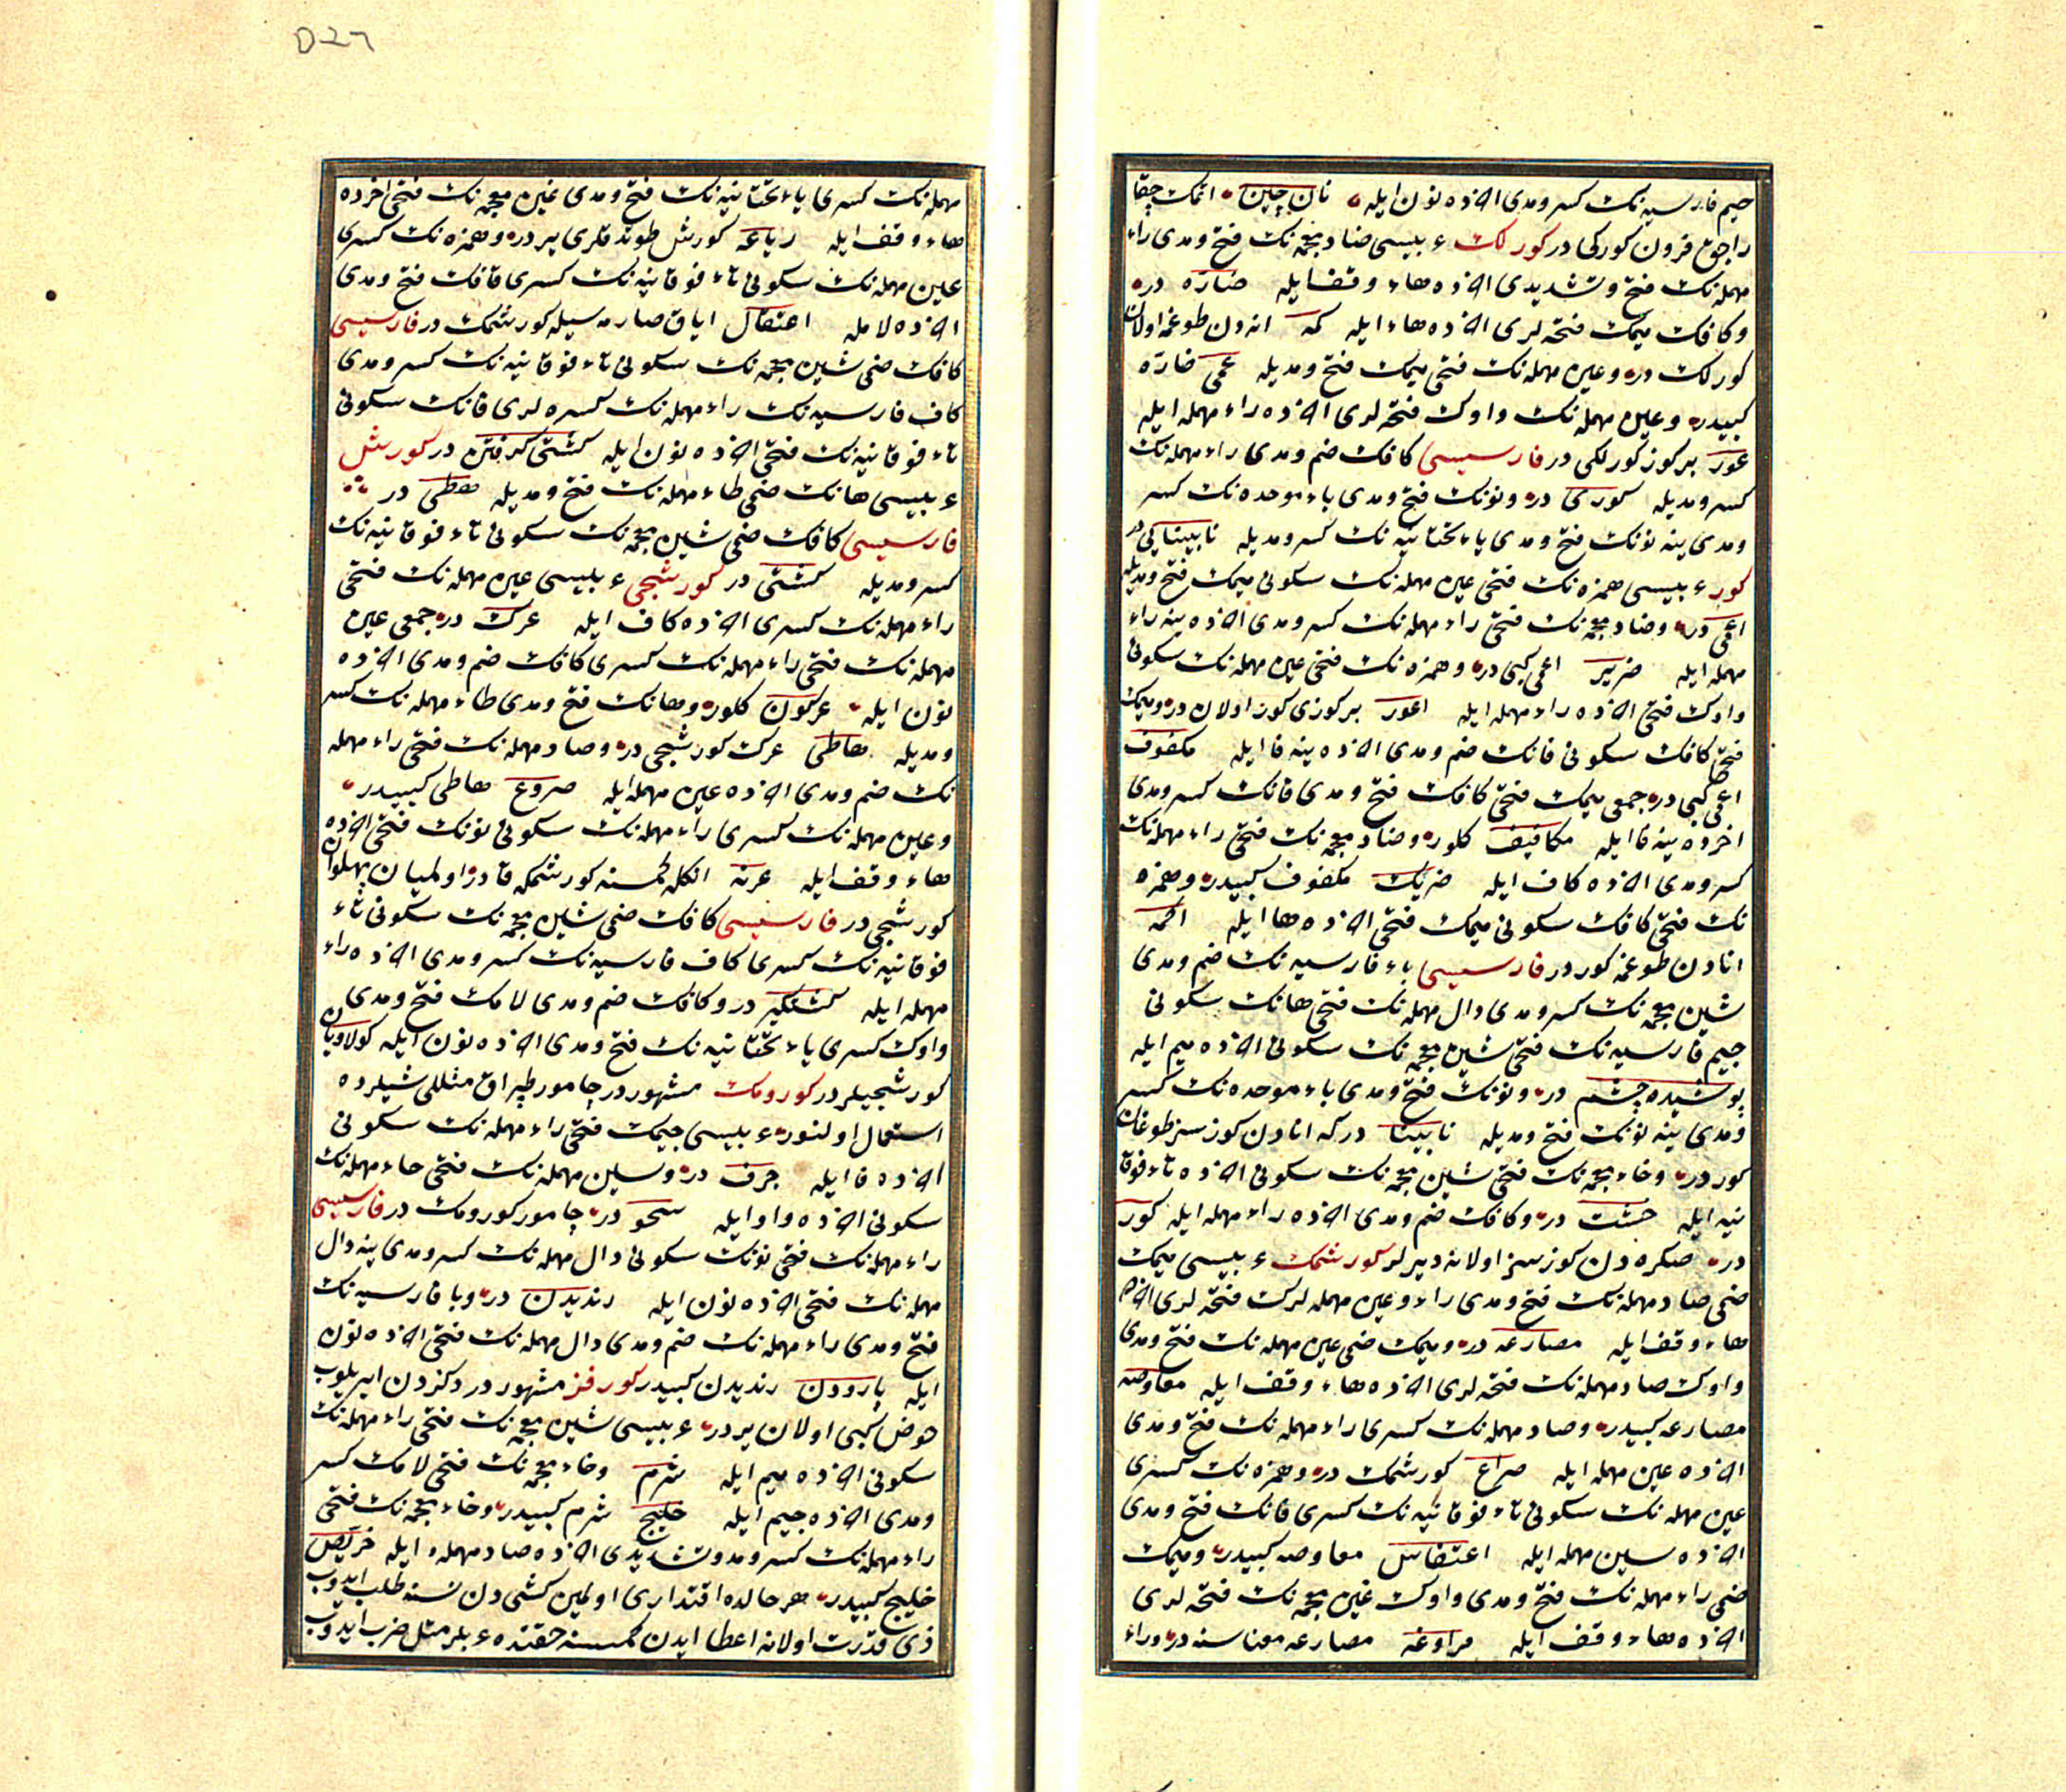 جيم فارسيه نك كسر و مدى اخرده نون ايله نان چين اتمك چقا
راجوق فرون كوركى در كورلك ء بيسى ضاد معجمه نك فتح و مدى راء
مهمله نك فتح و تشديدى اخرده هاء وقف ايله ضارّه در
و كافك ميمك فتحه لرى اخرده هاء ايله كمه انه دن طوغمه اولان
كورلك در و عين مهمله نك فتحى ميمك فتح و مديله عمى ضارّه
كبيدر و عين مهمله نك واوك فتحه لرى اخرده راء مهمله ايله
عور بر كوز كورلكى در فارسيسى كافك ضم و مدى راء مهمله نك
كسر و مديله كورى در و نونك فتح و مدى باء موحده نك كسر
و مدى ينه نونك فتح و مدى ياء تحتانيه نك كسر و مديله نابينايى در
كور ء بيسى همزه نك فتحى عين مهمله نك سكونى ميمك فتح و مديله
اعمى در و ضاد معجمه نك فتحى راء مهمله نك كسر و مدى اخرده ينه راء
مهمله ايله ضرير اعمى كبى در و همزه نك فتحى عين مهمله نك سكونى
واوك فتحى اخرده راء مهمله ايله اعور بر كوزى كور اولان در و ميمك
فتحى كافك سكونى فانك ضم و مدى اخرده ينه فا ايله مكفوف
اعمى كبى در جمعى ميمك فتحى كافك فتح و مدى فانك كسر و مدى
اخرده ينه فا ايله مكافيف كلور و ضاد معجمه نك فتحى راء مهمله نك
كسر و مدى اخرده كاف ايله ضريك مكفوف كبيدر و همزه
نك فتحى كافك سكونى ميمك فتحى اخرده ها ايله اكمه
انادن طوغمه كور در فارسيسى باء فارسيه نك ضم و مدى
شين معجمه نك كسر و مدى دال مهمله نك فتحى هانك سكونى
جيم فارسيه نك فتحى شين معجمه نك سكونى اخرده ميم ايله
پوشيده چشم در و نونك فتح و مدى باء موحده نك كسر
و مدى ينه نونك فتح و مديله نابينا در كه انادن كوزسز طوغان
كور در و خاء معجمه نك فتحى شين معجمه نك سكونى اخرده تاء فوقا
نيه ايله خشت در و كافك ضم و مدى اخرده راء مهمله ايله كور
در صكره دن كوزسز اولانه ديرلر كورشمك ء بيسى ميمك
ضمى صاد مهمله نك فتح و مدى راء و عين مهمله لرك فتحه لرى اخرده
هاء وقف ايله مصارعه در و ميمك ضمى عين مهمله نك فتح و مدى
واوك صاد مهمله نك فتحه لرى اخرده هاء وقف ايله معاوصه
مصارعه كبيدر و صاد مهمله نك كسرى راء مهمله نك فتح و مدى
اخرده عين مهمله ايله صراع كورشمك در و همزه نك كسرى
عين مهمله نك سكونى تاء فوقانيه نك كسرى فانك فتح و مدى
اخرده سين مهمله ايله اعتفاس معاوصه كبيدر و ميمك
ضمى راء مهمله نك فتح و مدى واوك غين معجمه نك فتحه لرى
اخرده هاء وقف ايله مراوغه مصارعه معناسنه در و راء
مهمله نك كسرى ياء تحتانيه نك فتح و مدى غين معجمه نك فتحى اخرده
هاء وقف ايله رياغه كورش طوتدقلرى ير در و همزه نك كسرى
عين مهمله نك سكونى تاء فوقانيه نك كسرى قافك فتح و مدى
اخرده لام ايله اعتقال اياق صارمه سيله كورشمك در فارسيسى
كافك ضمى شين معجمه نك سكونى تاء فوقانيه نك كسر و مدى
كاف فارسيه نك راء مهمله نك كسره لرى فانك سكونى
تاء فوقانيه نك فتحى اخرده نون ايله كشتى گرفتن در كورش
ء بيسى هانك ضمى طاء مهمله نك فتح و مديله هطى در
فارسيسى كافك ضمى شين معجمه نك سكونى تاء فوقانيه نك
كسر و مديله كشتى در كورشجى ء بيسى عين مهمله نك فتحى
راء مهمله نك كسرى اخرده كاف ايله عرك در جمعى عين
مهمله نك فتحى راء مهمله نك كسرى كافك ضم و مدى اخرده
نون ايله عركون كلور و هانك فتح و مدى طاء مهمله نك كسر
و مديله هاطى عرك كورشجى در و صاد مهمله نك فتحى راء مهمله
نك ضم و مدى اخرده عين مهمله ايله صروع هاطى كبيدر
و عين مهمله نك كسرى راء مهمله نك سكونى نونك فتحى اخرده
هاء وقف ايله عرنه انكله كمسنه كورشمكه قادر اولميان پهلوان
كورشجى در فارسيسى كافك ضمى شين معجمه نك سكونى تاء
فوقانيه نك كسرى كاف فارسيه نك كسر و مدى اخرده راء
مهمله ايله كشتگير در و كافك ضم و مدى لامك فتح و مدى
واوك كسرى ياء تحتانيه نك فتح و مدى اخرده نون ايله كولاويان
كورشجيلر در كورومك مشهور در چامور طپراق مثللى شيلرده
استعمال اولنور ء بيسى جيمك فتحى راء مهمله نك سكونى
اخرده فا ايله جرف در و سين مهمله نك فتحى حاء مهمله نك
سكونى اخرده واو ايله سحو در چامور كورومك در فارسيسى
راء مهمله نك فتحى نونك سكونى دال مهمله نك كسر و مدى ينه دال
مهمله نك فتحى اخرده نون ايله رنديدن در و با فارسيه نك
فتح و مدى راء مهمله نك ضم و مدى دال مهمله نك فتحى اخرده نون
ايله پارودن رنديدن كبيدر كورفز مشهور در دكزدن ايريلوب
حوض كبى اولان ير در ء بيسى شين معجمه نك فتحى راء مهمله نك
سكونى اخرده ميم ايله شرم و خاء معجمه نك فتحى لامك كسر
و مدى اخرده جيم ايله خليج شرم كبيدر و خاء معجمه نك فتحى
راء مهمله نك كسر و مد و تشديدى اخرده صاد مهمله ايله خريص
خليج كبيدر هر حالده اقتدارى اولمين كشى دن نسنه طلب ايدوب
ذى قدرت اولانه اعطا ايدن كمسنه حقنده ء بلر مثل ضرب ايدوب